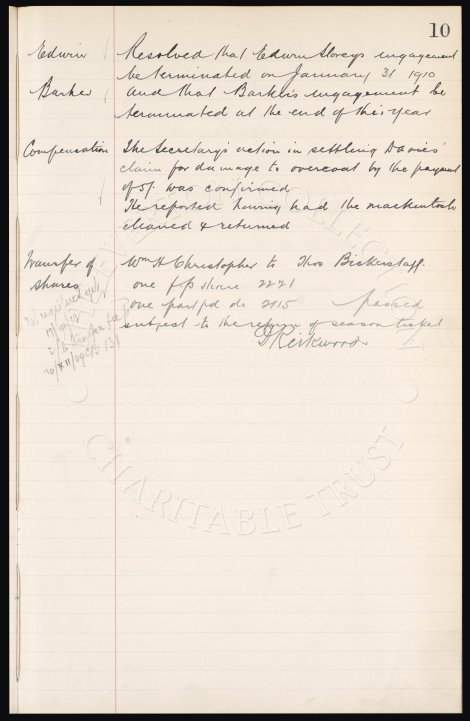 10
Edwin Resolved that Edwin Storey's engagement
be terminated on January 31 1910
Barker and that Barker's engagement be
terminated at the end of this year
Compensation The Secretary's action in settling Davies'
claim for damage to overcoat by the payment
of 5/- was confirmed
He reported having had the mackintosh
cleaned & returned
Transfer of Wm H Christopher to Thos Bickerstaff.
shares one f/p share 2221
one part pd do 2115 passed
subject to the return of season ticket
D Kirkwood
EVERTON COLLECTION
CHARITABLE TRUST